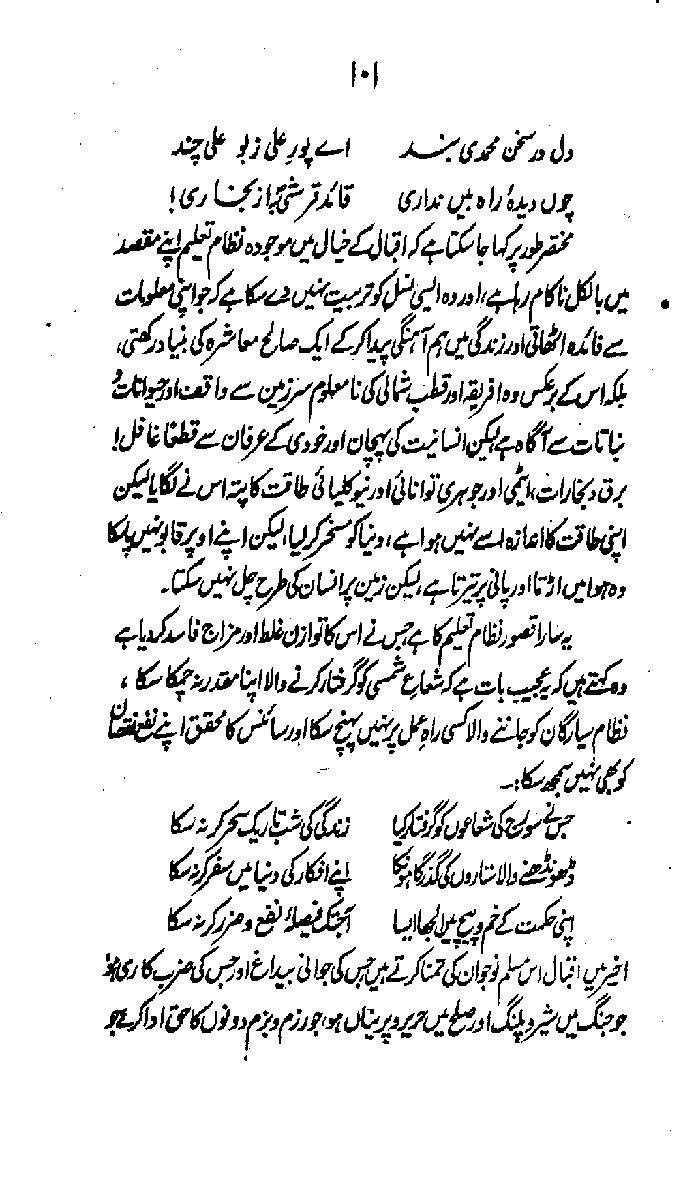 ۱۰۱
دل در سخن محمدی بند     اے پورِ علی ز بو علی چند
چوں دیدۂ راہ بیں نداری     قائد قرشی بہ از بخاری!
مختصر طور پر کہا جا سکتا ہے کہ اقبال کے خیال میں موجودہ نظام تعلیم اپنے مقصد
میں بالکل ناکام رہا ہے، اور وہ ایسی نسل کو تربیت نہیں دے سکا ہے کہ جو اپنی معلومات
سے فائدہ اٹھاتی اور زندگی میں ہم آہنگی پیدا کر کے ایک صالح معاشرہ کی بنیاد رکھتی،
بلکہ اس کے برعکس وہ افریقہ اور قطب شمالی کی نامعلوم سرزمین سے واقف اور حیوانات و
نباتات سے آگاہ ہے لیکن انسانیت کی پہچان اور خودی کے عرفان سے قطعًا غافل!
برق و بخارات، ایٹمی اور جوہری توانائی اور نیوکلیائی طاقت کا پتہ اس نے لگایا لیکن
اپنی طاقت کا اندازہ اسے نہیں ہوا ہے، دنیا کو مسخر کر لیا، لیکن اپنے اوپر قابو نہیں پا سکا
وہ ہوا میں اڑتا اور پانی پر تیرتا ہے، لیکن زمین پر انسان کی طرح چل نہیں سکتا۔
یہ سارا قصور نظام تعلیم کا ہے جس نے اس کا توازن غلط اور مزاج فاسد کر دیا ہے
وہ کہتے ہیں کہ یہ عجیب بات ہے کہ شعاع شمسی کو گرفتار کرنے والا اپنا مقدر نہ چمکا سکا،
نظام سیارگان کو جاننے والا کسی راہِ عمل پر نہیں پہنچ سکا اور سائنس کا محقق اپنے نفع نقصان
کو بھی نہیں سمجھ سکا:۔
جس نے سورج کی شعاعوں کو گرفتار کیا     زندگی کی شب تاریک سحر کر نہ سکا
ڈھونڈھنے والا ستاروں کی گذرگاہوں کا     اپنے افکار کی دنیا میں سفر کر نہ سکا
اپنی حکمت کے خم و پیچ میں الجھا ایسا     آجتک فیصلۂ نفع و ضرر کر نہ سکا
اخیر میں اقبال اس مسلم نوجوان کی تمنا کرتے ہیں جس کی جوانی بیداغ اور جس کی ضرب کاری ہو
جو جنگ میں شیر و پلنگ اور صلح میں حریر و پرنیاں ہو، جو رزم و بزم دونوں کا حق ادا کرے جو